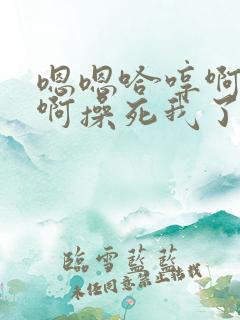 嗯嗯哈哼啊
啊操死我了
臨雪藍藍
未经同意禁止转载